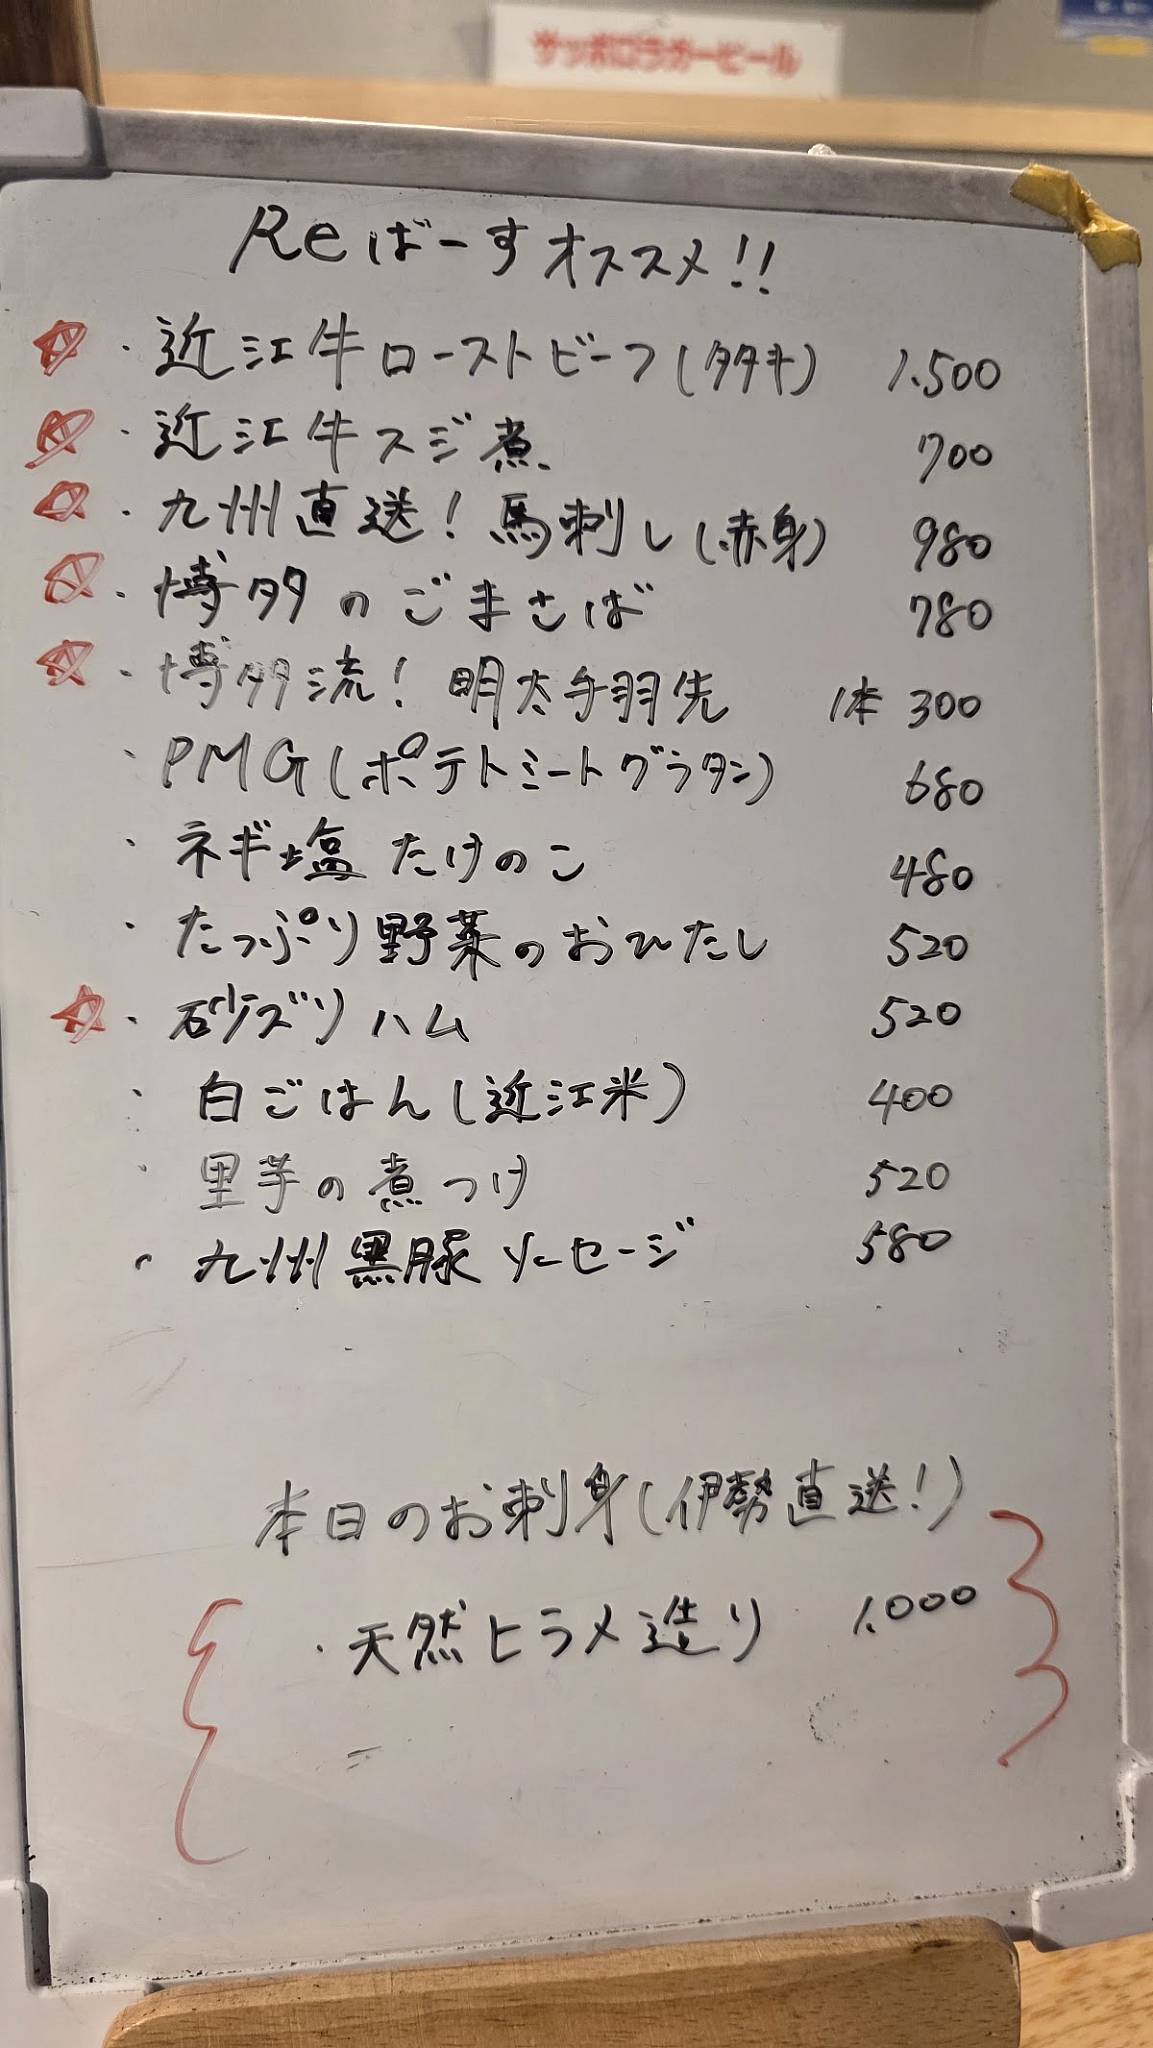 サッポロラガービール
Reばーすオススメ!!
・近江牛ローストビーフ(タタキ) 1,500
・近江牛スジ煮 700
・九州直送!馬刺し(赤身) 980
・博多のごまさば 780
・博多流!明太手羽先 1本 300
・PMG(ポテトミートグラタン) 680
・ネギ塩たけのこ 480
・たっぷり野菜のおひたし 520
・砂ズリハム 520
・白ごはん(近江米) 400
・里芋の煮つけ 520
・九州黒豚ソーセージ 580
本日のお刺身(伊勢直送!)
・天然ヒラメ造り 1,000